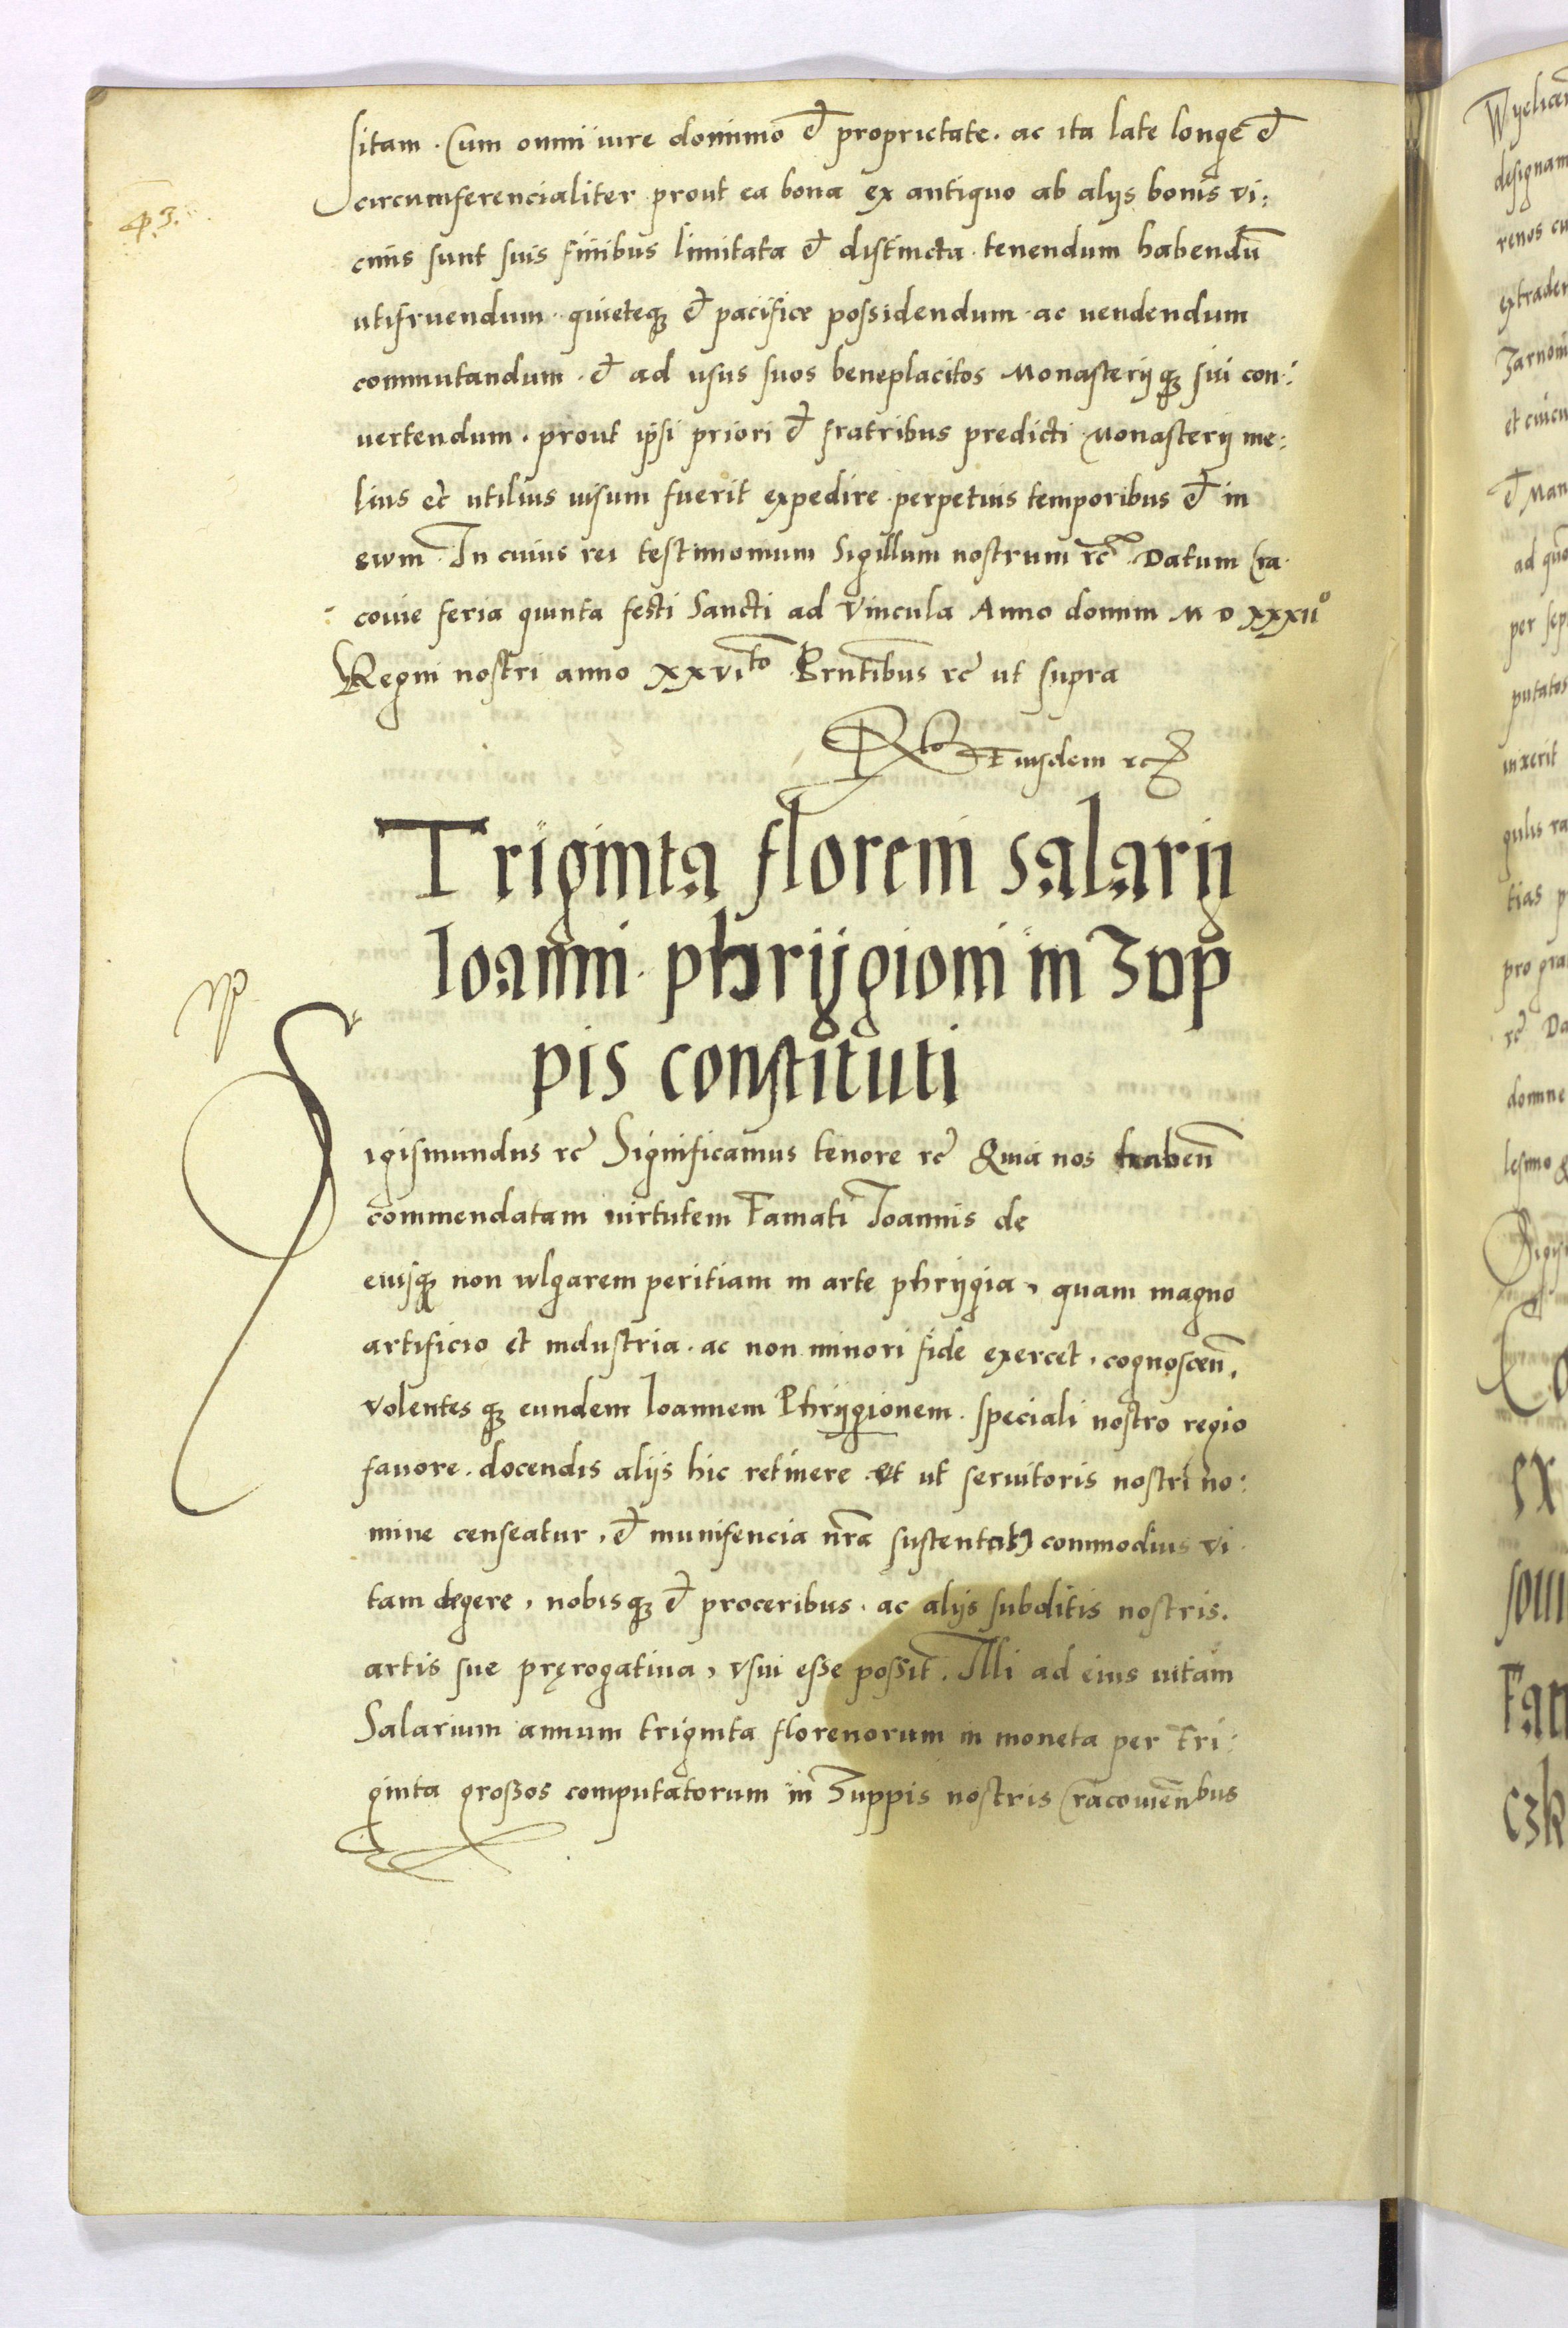 sitam. Cum omni iure dominio et proprietate. ac ita late longe et
circumferencialiter prout ea bona ex antiquo ab alijs bonis vi:
cinis sunt suis finibus limitata et distincta. tenendum habendū
utifruendum. quieteqꝫ et pacifice possidendum. ac uendendum
commutandum. et ad usus suos beneplacitos Monasterijqꝫ sui con:
uertendum. prout ipsi priori et fratribus predicti Monasterij me:
lius et utilius uisum fuerit expedire. perpetuis temporibus et in
ewm. In cuius rei testimonium Sigillum nostrum rc̄. Datum Cra
couie feria quinta festi Sancti ad Vincula Anno domini M D XXXIIº
Regni nostri anno XXVIto. Prntibus rc̄ ut supra
Rto Eiusdem rc̄
Triginta floreni salarij
Ioanni phrijgioni in Zup
pis constituti
Sigismundus rc̄ Significamus tenore rc̄ Quia nos habeñ
commendatam uirtutem Famati Joannis de
eiusqꝫ non wlgarem peritiam in arte phrijgia, quam magno
artificio et industria. ac non minori fide exercet, cognosceñ.
volentesqꝫ eundem Ioannem Phrijgionem. speciali nostro regio
fauore. docendis alijs hic retinere et ut seruitoris nostri no:
mine censeatur, et munifencia nr̄a sustentatꝰ commodius vi
tam degere, nobisqꝫ et proceribus. ac alijs subditis nostris.
artis sue pręrogatiua, vsui esse possit. Illi ad eius uitam
Salarium annum triginta florenorum in moneta per tri:
ginta grossos computatorum in Zuppis nostris Cracouieñbus